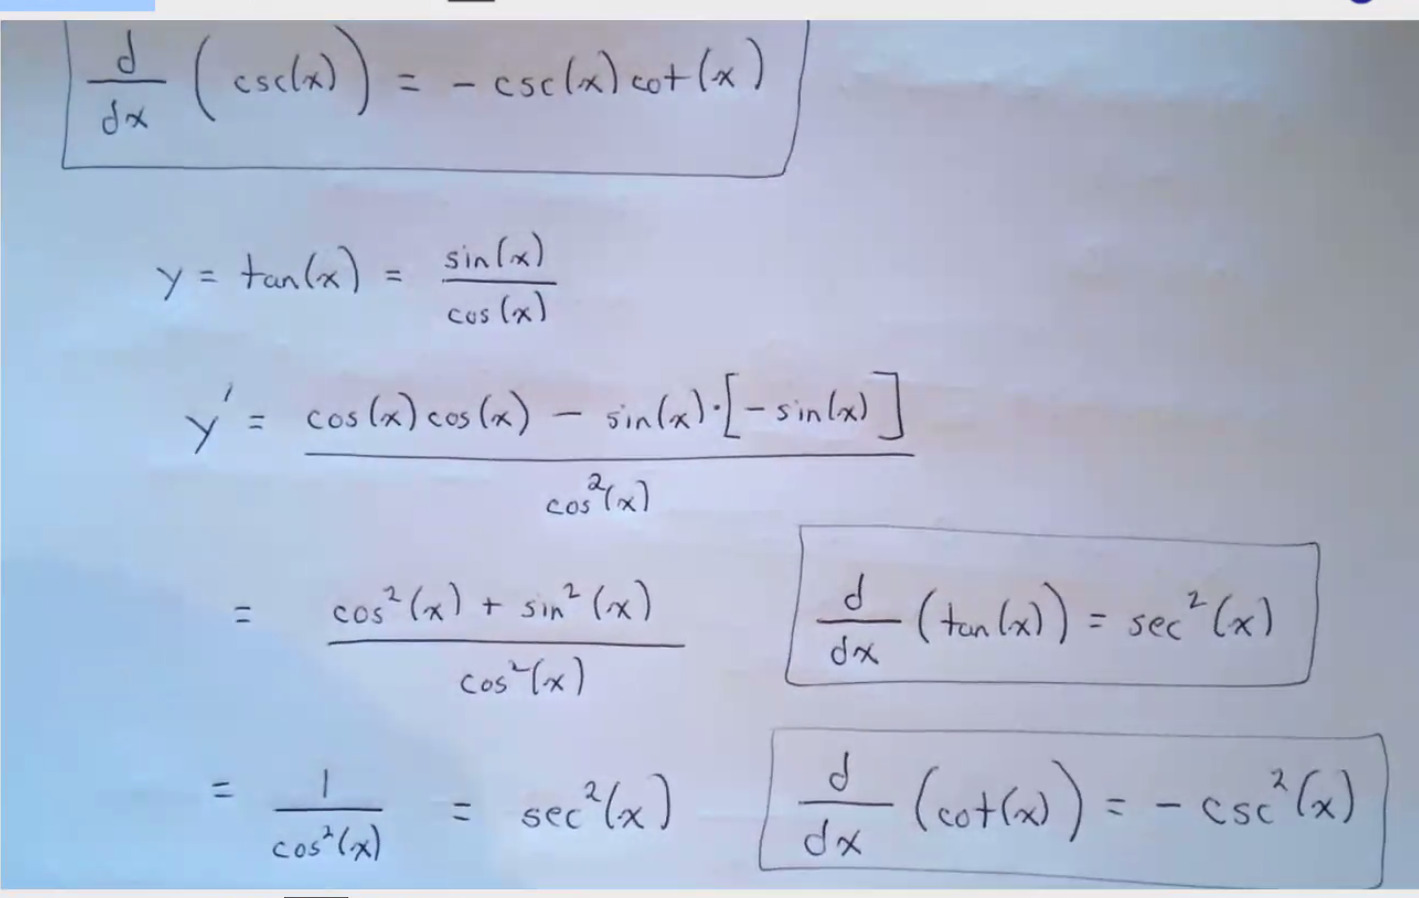 d/dx (csc(x)) = - csc(x) cot(x)
y = tan(x) = sin(x)/cos(x)
y' = cos(x) cos(x) - sin(x)·[-sin(x)] / cos²(x)
= cos²(x) + sin²(x) / cos²(x)
d/dx (tan(x)) = sec²(x)
= 1/cos²(x) = sec²(x)
d/dx (cot(x)) = - csc²(x)